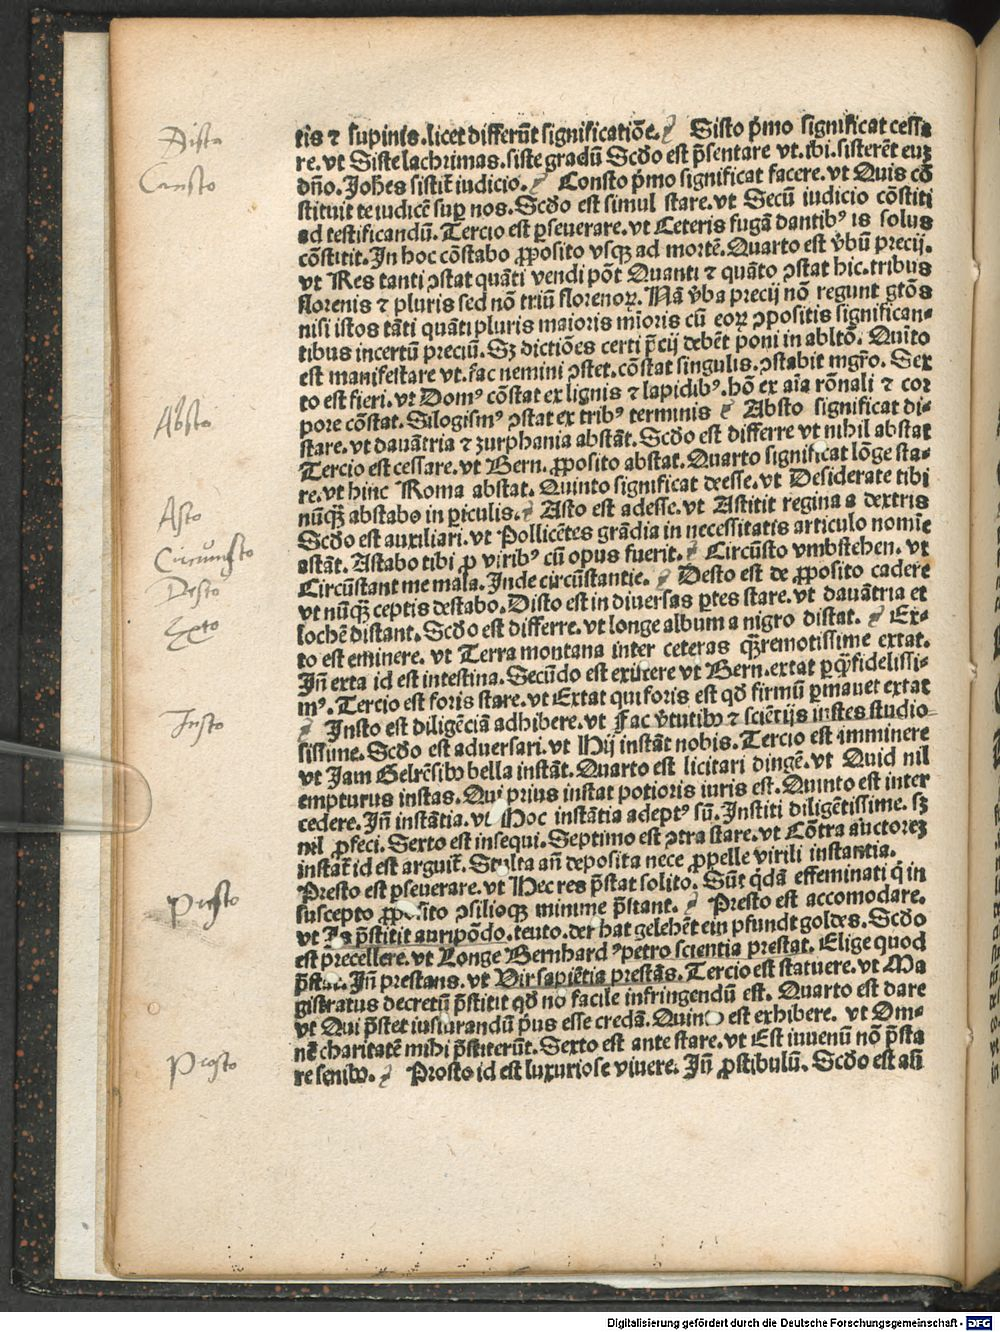 tis ⁊ supinis. licet differūt significatiōe. Sisto pͥmo significat cessa
re. vt Siste lachrimas. siste gradū Scd́o est p̄sentare vt. ibi. sisterēt euꝫ
dn̄o. Joh̄es sistit̄ iudicio. Consto pͥmo significat facere. vt Quis cō
stituit te iudicē suꝑ nos. Scd́o est simul stare. vt Secū iudicio cōstiti
ad testificandū. Tercio est ꝑseuerare. vt Ceteris fugā dantibꝰ is solus
cōstitit. In hoc cōstabo ꝓposito vsqꝫ ad mortē. Quarto est v̓bū precij.
vt Res tanti ꝯstat quāti vendi pōt Quanti ⁊ quāto ꝯstat hic. tribus
florenis ⁊ pluris sed nō triū florenoꝝ. Nā v̓ba precij nō regunt gtōs
nisi istos tāti quāti pluris maioris mīoris cū eoꝝ ꝯpositis significan-
tibus incertū preciū. Sꝫ dictiōes certi p̄cij debēt poni in abltō. Quīto
est manifestare vt. fac nemini ꝯstet. cōstat singulis. ꝯstabit mgr̄o. Sex
to est fieri. vt Domꝰ cōstat ex lignis ⁊ lapidibꝰ. hō ex aīa rōnali ⁊ cor
pore cōstat. Silogismꝰ ꝯstat ex tribꝰ terminis Absto significat di-
stare. vt dauātria ⁊ zurphania abstāt. Scd́o est differre vt nihil abstat
Tercio est cessare. vt Bern. ꝓposito abstat. Quarto significat lōge sta-
re. vt hinc Roma abstat. Quinto significat deesse. vt Desiderate tibi
nūqꝫ̄ abstabo in ꝑiculis. Asto est adesse. vt Astitit regina a dextris
Scd́o est auxiliari. vt Pollicētes grādia in necessitatis articulo nomīe
astāt. Astabo tibi ꝓ viribꝰ cū opus fuerit. Circūsto vmbstehen. vt
Circūstant me mala. Inde circūstantie. Desto est de ꝓposito cadere
vt nūqꝫ̄ ceptis destabo. Disto est in diuersas ꝑtes stare. vt dauātria et
lochē distant. Scd́o est differre. vt longe album a nigro distat. Ex-
to est eminere. vt Terra montana inter ceteras qꝫ̄remotissime extat.
Iñ exta id est intestina. Secūdo est existere vt Bern. extat ꝑqͣ̄fidelissi-
mꝰ. Tercio est foris stare. vt Extat qui foris est qd́ firmū ꝑmanet extat
Insto est diligēciā adhibere. vt Fac v̓tutibꝫ ⁊ sciētijs instes studio-
sissime. Scd́o est aduersari. vt Hij instāt nobis. Tercio est imminere
vt Jam Gelrēsibꝫ bella instāt. Quarto est licitari dingē. vt Quid nil
empturus instas. Qui prius instat potioris iuris est. Quinto est inter
cedere. Iñ instātia. vt Hoc instātia adeptꝰ sū. Institi diligētissime. sꝫ
nil ꝓfeci. Sexto est insequi. Septimo est ꝯtra stare. vt Cōtra auctoreꝫ
instat̄ id est arguit̄. Stulta añ deposita nece ꝓpelle virili instantia.
Presto est ꝑseuerare. vt Hec res p̄stat solito. Sūt qͥdā effeminati qͥ in
suscepto ꝓposito ꝯsilioqꝫ minime p̄stant. Presto est accomodare.
vt Is p̄stitit auripōdo. teuto. der hat gelehēt ein pfundt goldes. Scd́o
est precellere. vt Longe Bernhardꝰ petro scientia prestat. Elige quod
p̄stat. Iñ prestans. vt Vir sapiētia prestās. Tercio est statuere. vt Ma
gistratus decretū p̄stitit qd́ nō facile infringendū est. Quarto est dare
vt Qui p̄stet iusiurandū pͥus esse credā. Quinto est exhibere. vt Om-
nē charitatē mihi p̄stiterūt. Sexto est ante stare. vt Est iuuenū nō p̄sta
re senibꝫ. Prosto id est luxuriose viuere. Iñ ꝓstibulū. Scd́o est añ
Sisto
Consto
Absto
Asto
Circumsto
Desto
Exto
Insto
Presto
Prosto
Digitalisierung gefördert durch die Deutsche Forschungsgemeinschaft - DFG